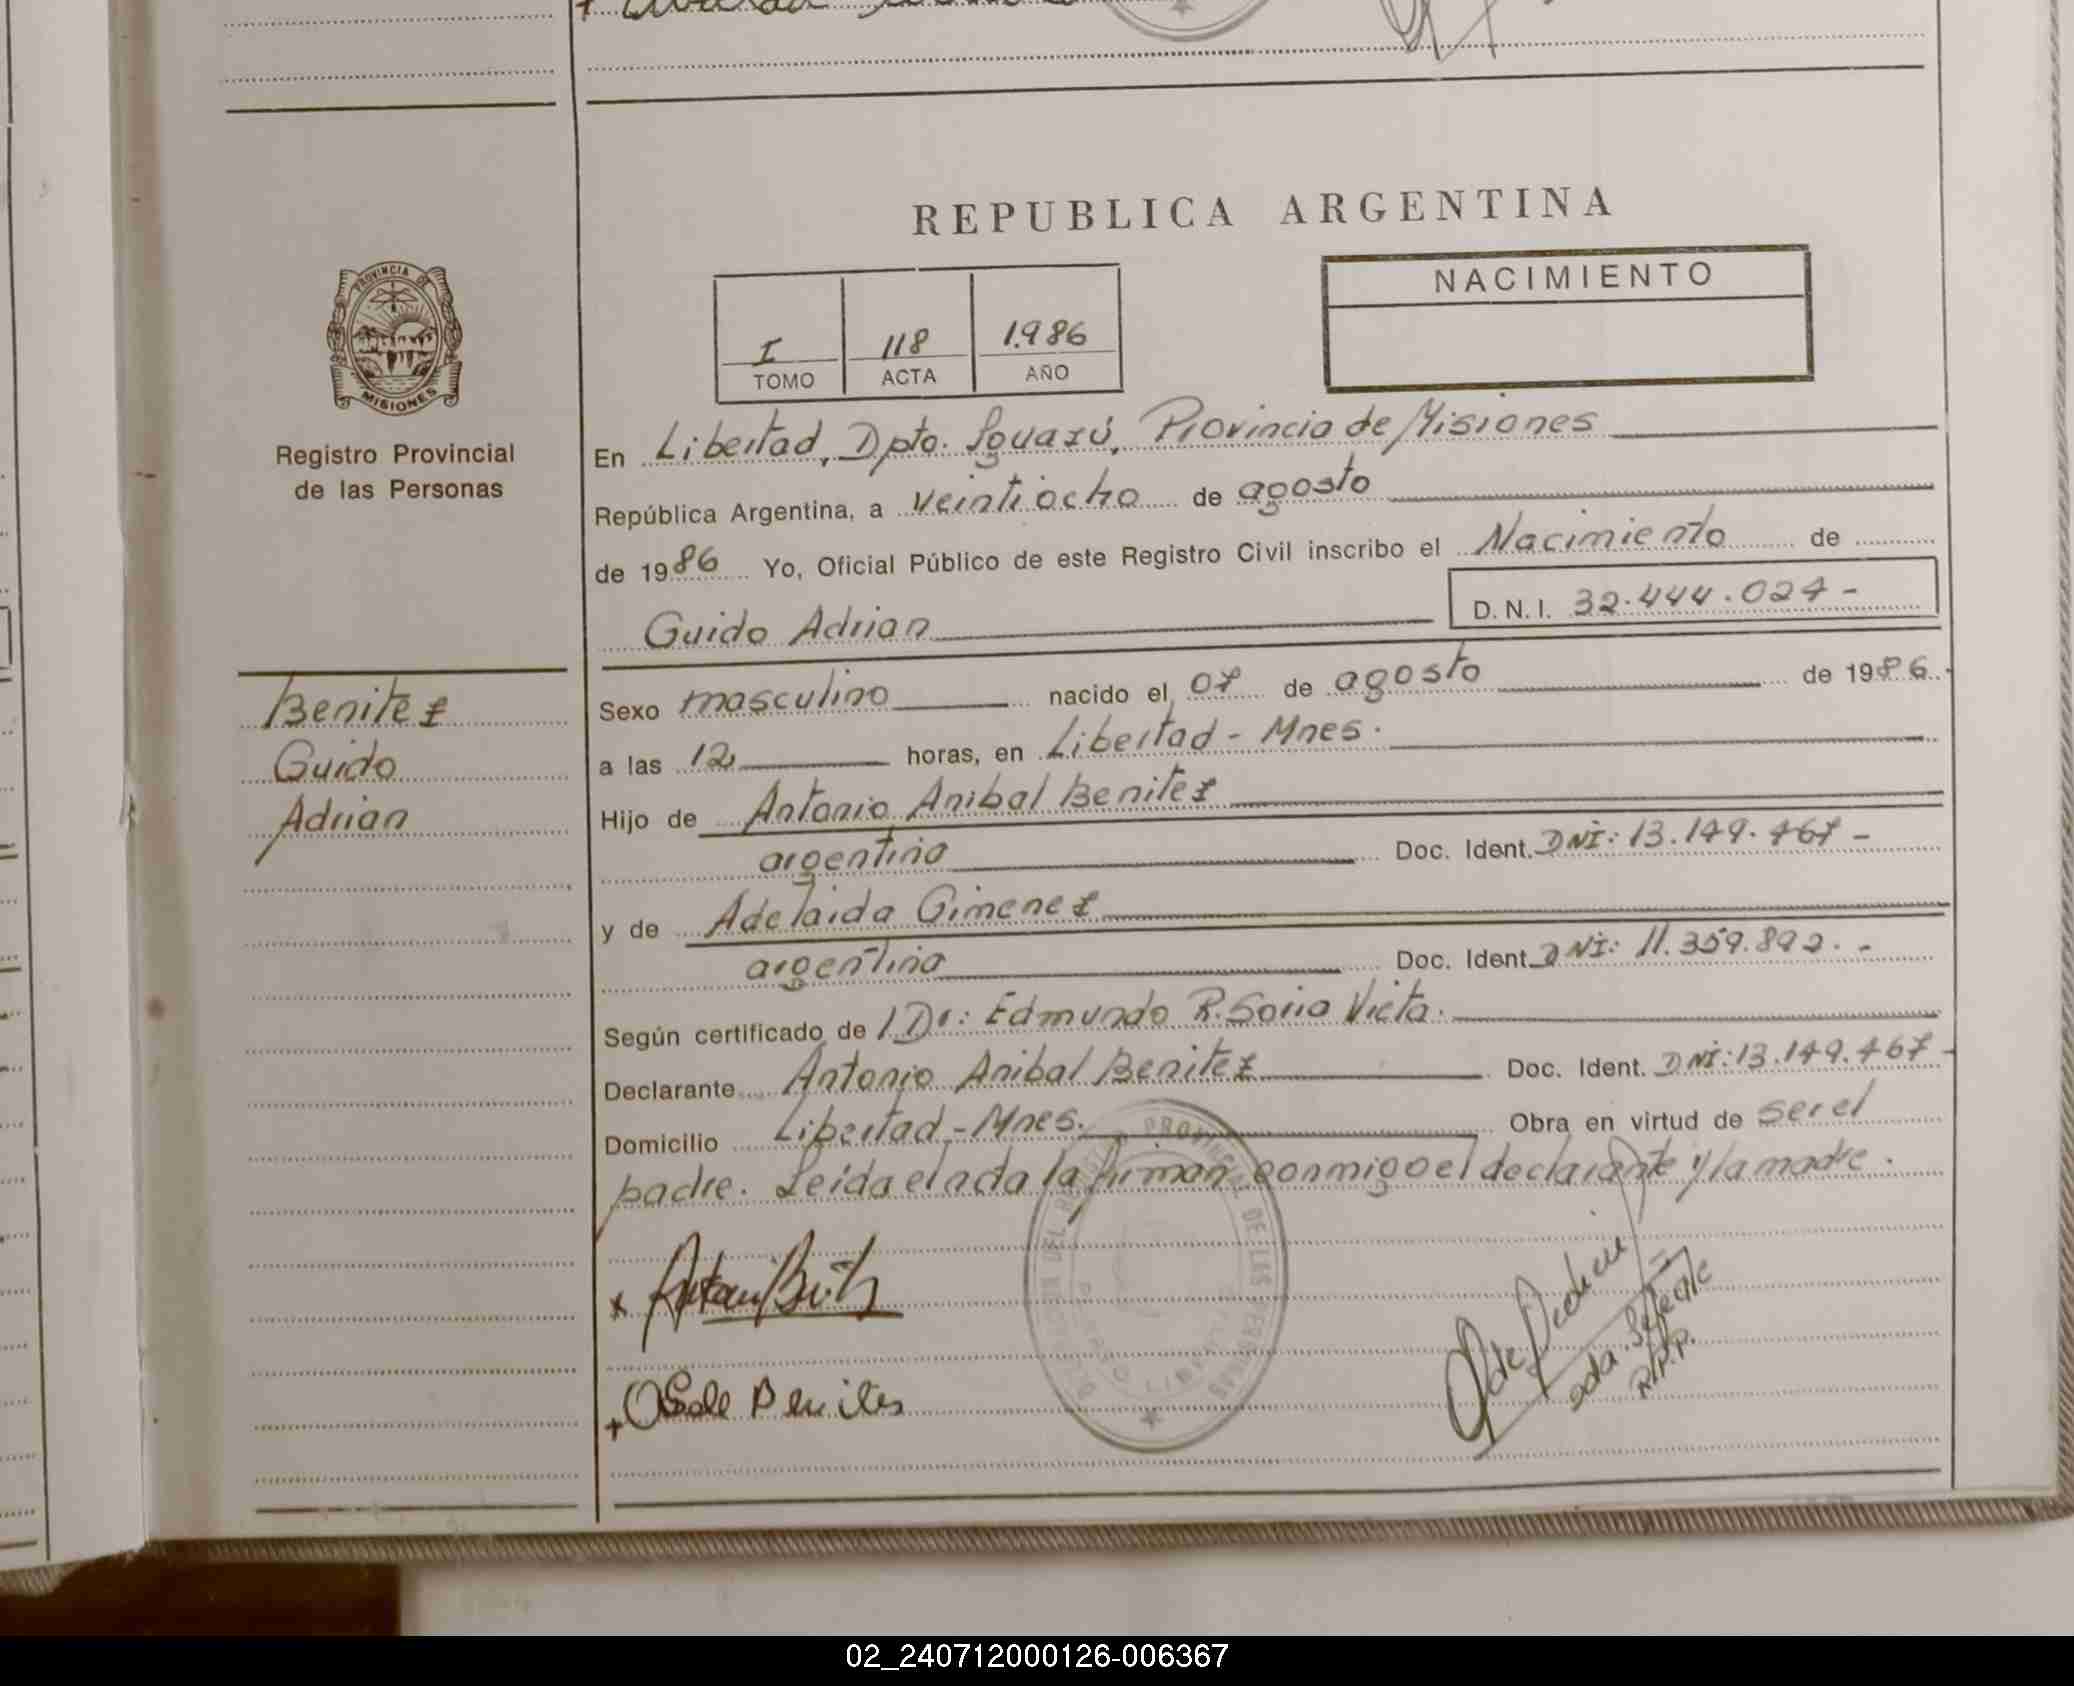 REPUBLICA ARGENTINA
PROVINCIA DE
MISIONES
Registro Provincial
de las Personas
NACIMIENTO
I 118 1.986
TOMO ACTA AÑO
En Libertad, Dpto. Iguazú, Provincia de Misiones
República Argentina, a veintiocho de agosto
de 1986 Yo, Oficial Público de este Registro Civil inscribo el Nacimiento de
Guido Adrian D.N.I. 32.444.027-
Benitez
Guido
Adrian
Sexo masculino nacido el 07 de agosto de 1986.
a las 12 horas, en Libertad - Mnes.
Hijo de Antonio Anibal Benitez
argentina Doc. Ident. DNI: 13.149.467-
y de Adelaida Gimenez
argentina Doc. Ident. DNI: 11.359.892.-
Según certificado de l Dr: Edmundo R. Soria Vieta.
Declarante Antonio Anibal Benitez Doc. Ident. DNI: 13.149.467-
Domicilio Libertad - Mnes. Obra en virtud de ser el
padre. Leída el acta la firman conmigo el declarante y la madre.
DEL REGISTRO PROVINCIAL DE LAS PERSONAS
x
+ Benites
R.P.P.
02_240712000126-006367